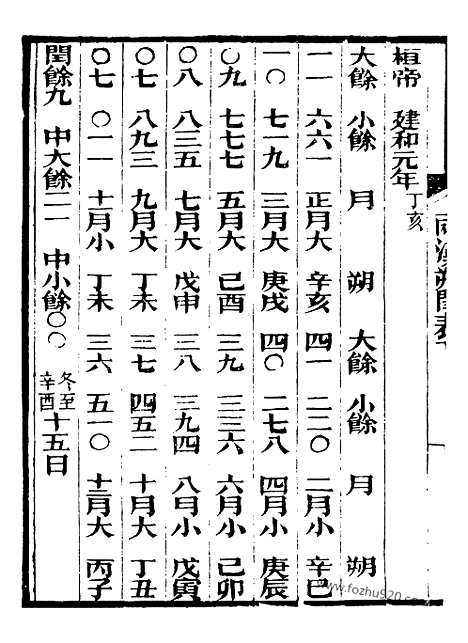 兩漢朔閏表
桓帝 建和元年丁亥
大餘 小餘 月 朔 大餘 小餘 月 朔
一一 六六一 正月大 辛亥 四一 二二〇 二月小 辛巳
一〇 七一九 三月大 庚戌 四〇 二七八 四月小 庚辰
〇九 七七七 五月大 己酉 三九 三三六 六月小 己卯
〇八 八三五 七月大 戊申 三八 三九四 八月小 戊寅
〇七 八九三 九月大 丁未 三七 四五二 十月大 丁丑
〇七 〇一一 十一月小 丁未 三六 五一〇 十二月大 丙子
閏餘九 中大餘二一 中小餘〇〇 冬至辛酉十五日
www.fozhu920.com